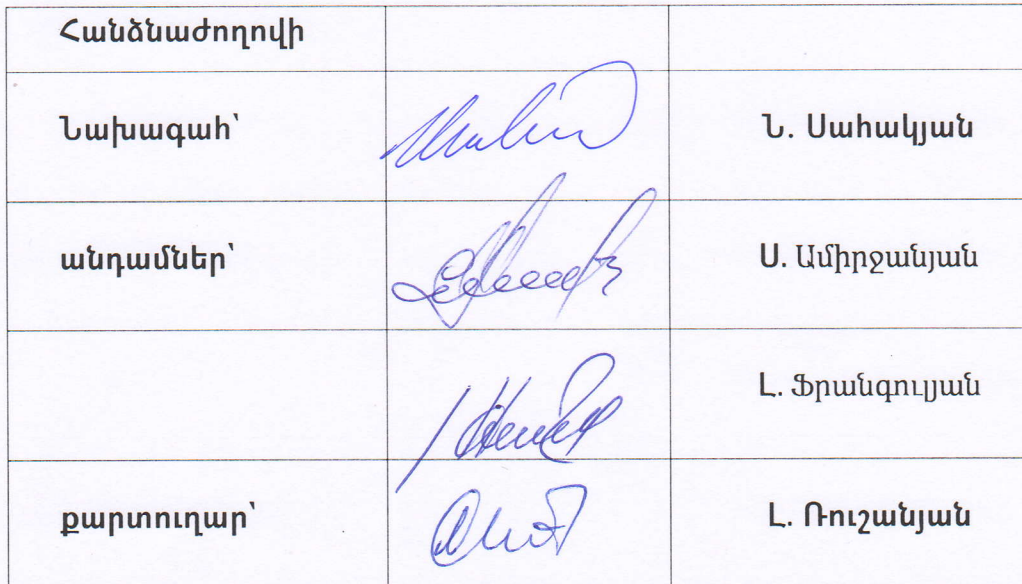 Հանձնաժողովի
Նախագահ՝ Ն. Սահակյան
անդամներ՝ Ս. Ամիրջանյան
Լ. Ֆրանգուլյան
քարտուղար՝ Լ. Ռուշանյան